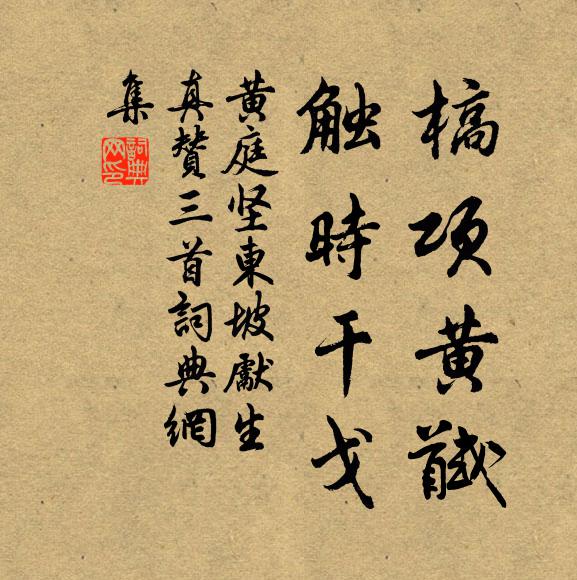 槁項黄馘
触時干戈
黄庭坚東坡獻生
真賛三首詞典網
集
詞典
网印